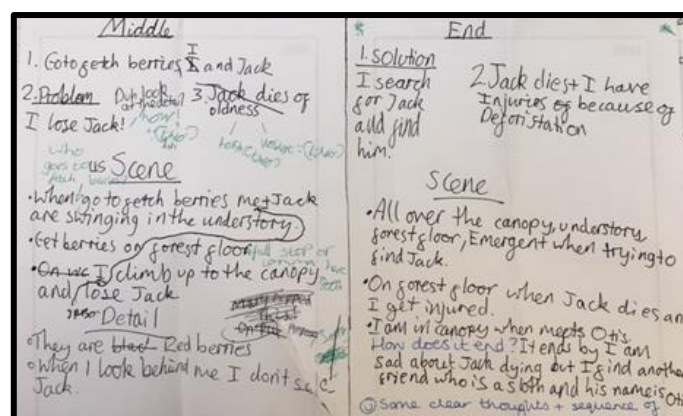 Middle
1. Go to fetch berries, I and Jack
2. Problem
I lose Jack!
3. Jack dies of
oldness
how!
who
goes to
us Scene
•When go to fetch berries me + Jack
are swinging in the understory.
•Get berries on forest floor
full stop or
comma
•On we I climb up to the canopy
and lose Jack
Detail
•They are black Red berries
•When I look behind me I dont see
Jack.
End
1. Solution
I search
for Jack
and find
him.
2. Jack dies + I have
Injuries of because of
Deforistation
Scene
•All over the canopy, understory
forest floor, Emergent when trying to
find Jack.
•On forest floor when Jack dies an
I get injured.
•I am in canopy when meets Otis
How does it end? It ends by I am
sad about Jack dying but I find another
friend who is a sloth and his name is Oti
Some clear thoughts + sequence of